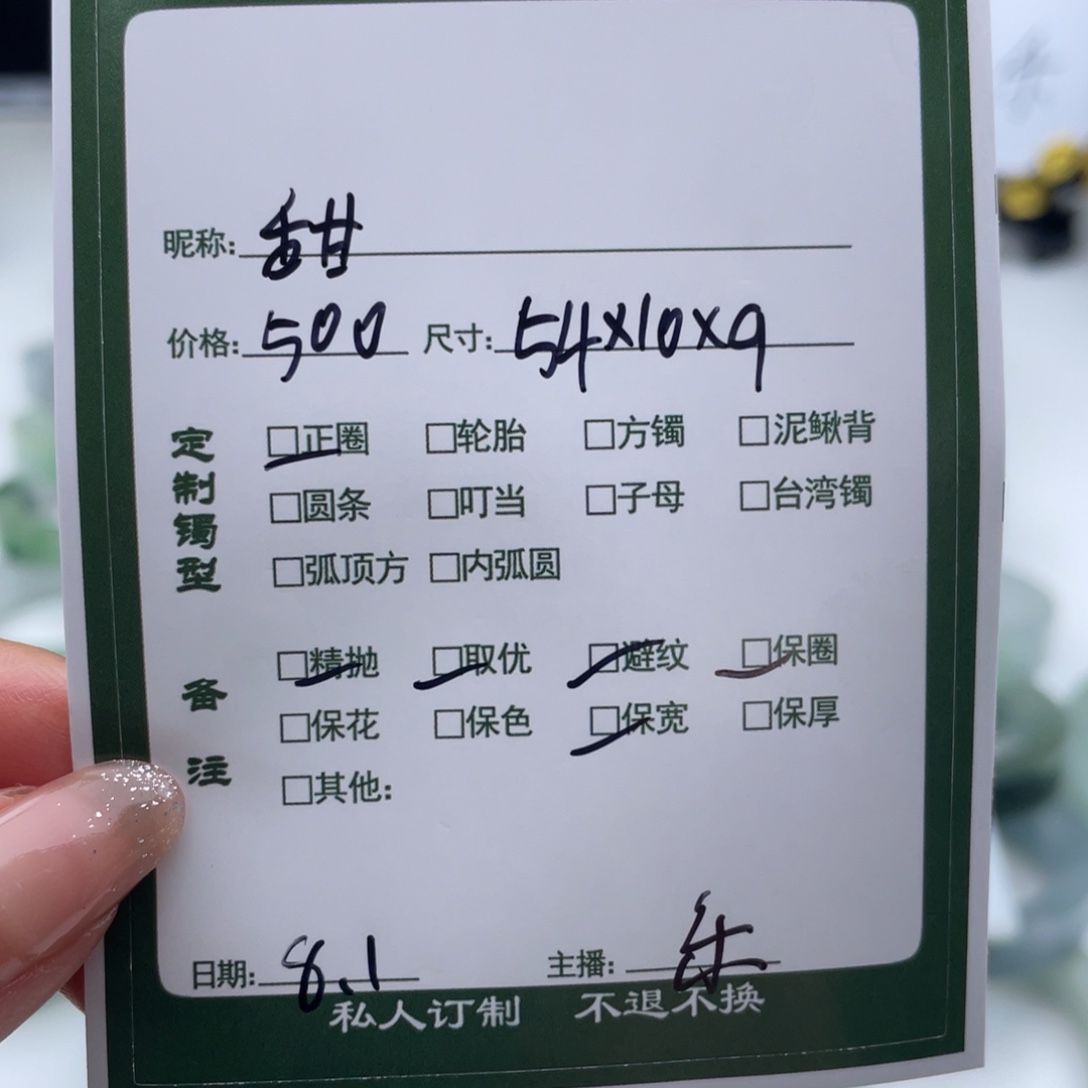 昵称: 甜
价格: 500 尺寸: 54×10×9
定制镯型
□正圈 □轮胎 □方镯 □泥鳅背
□圆条 □叮当 □子母 □台湾镯
□弧顶方 □内弧圆
备注
□精抛 □取优 □避纹 □保圈
□保花 □保色 □保宽 □保厚
□其他:
日期: 8.1 主播:
私人订制 不退不换